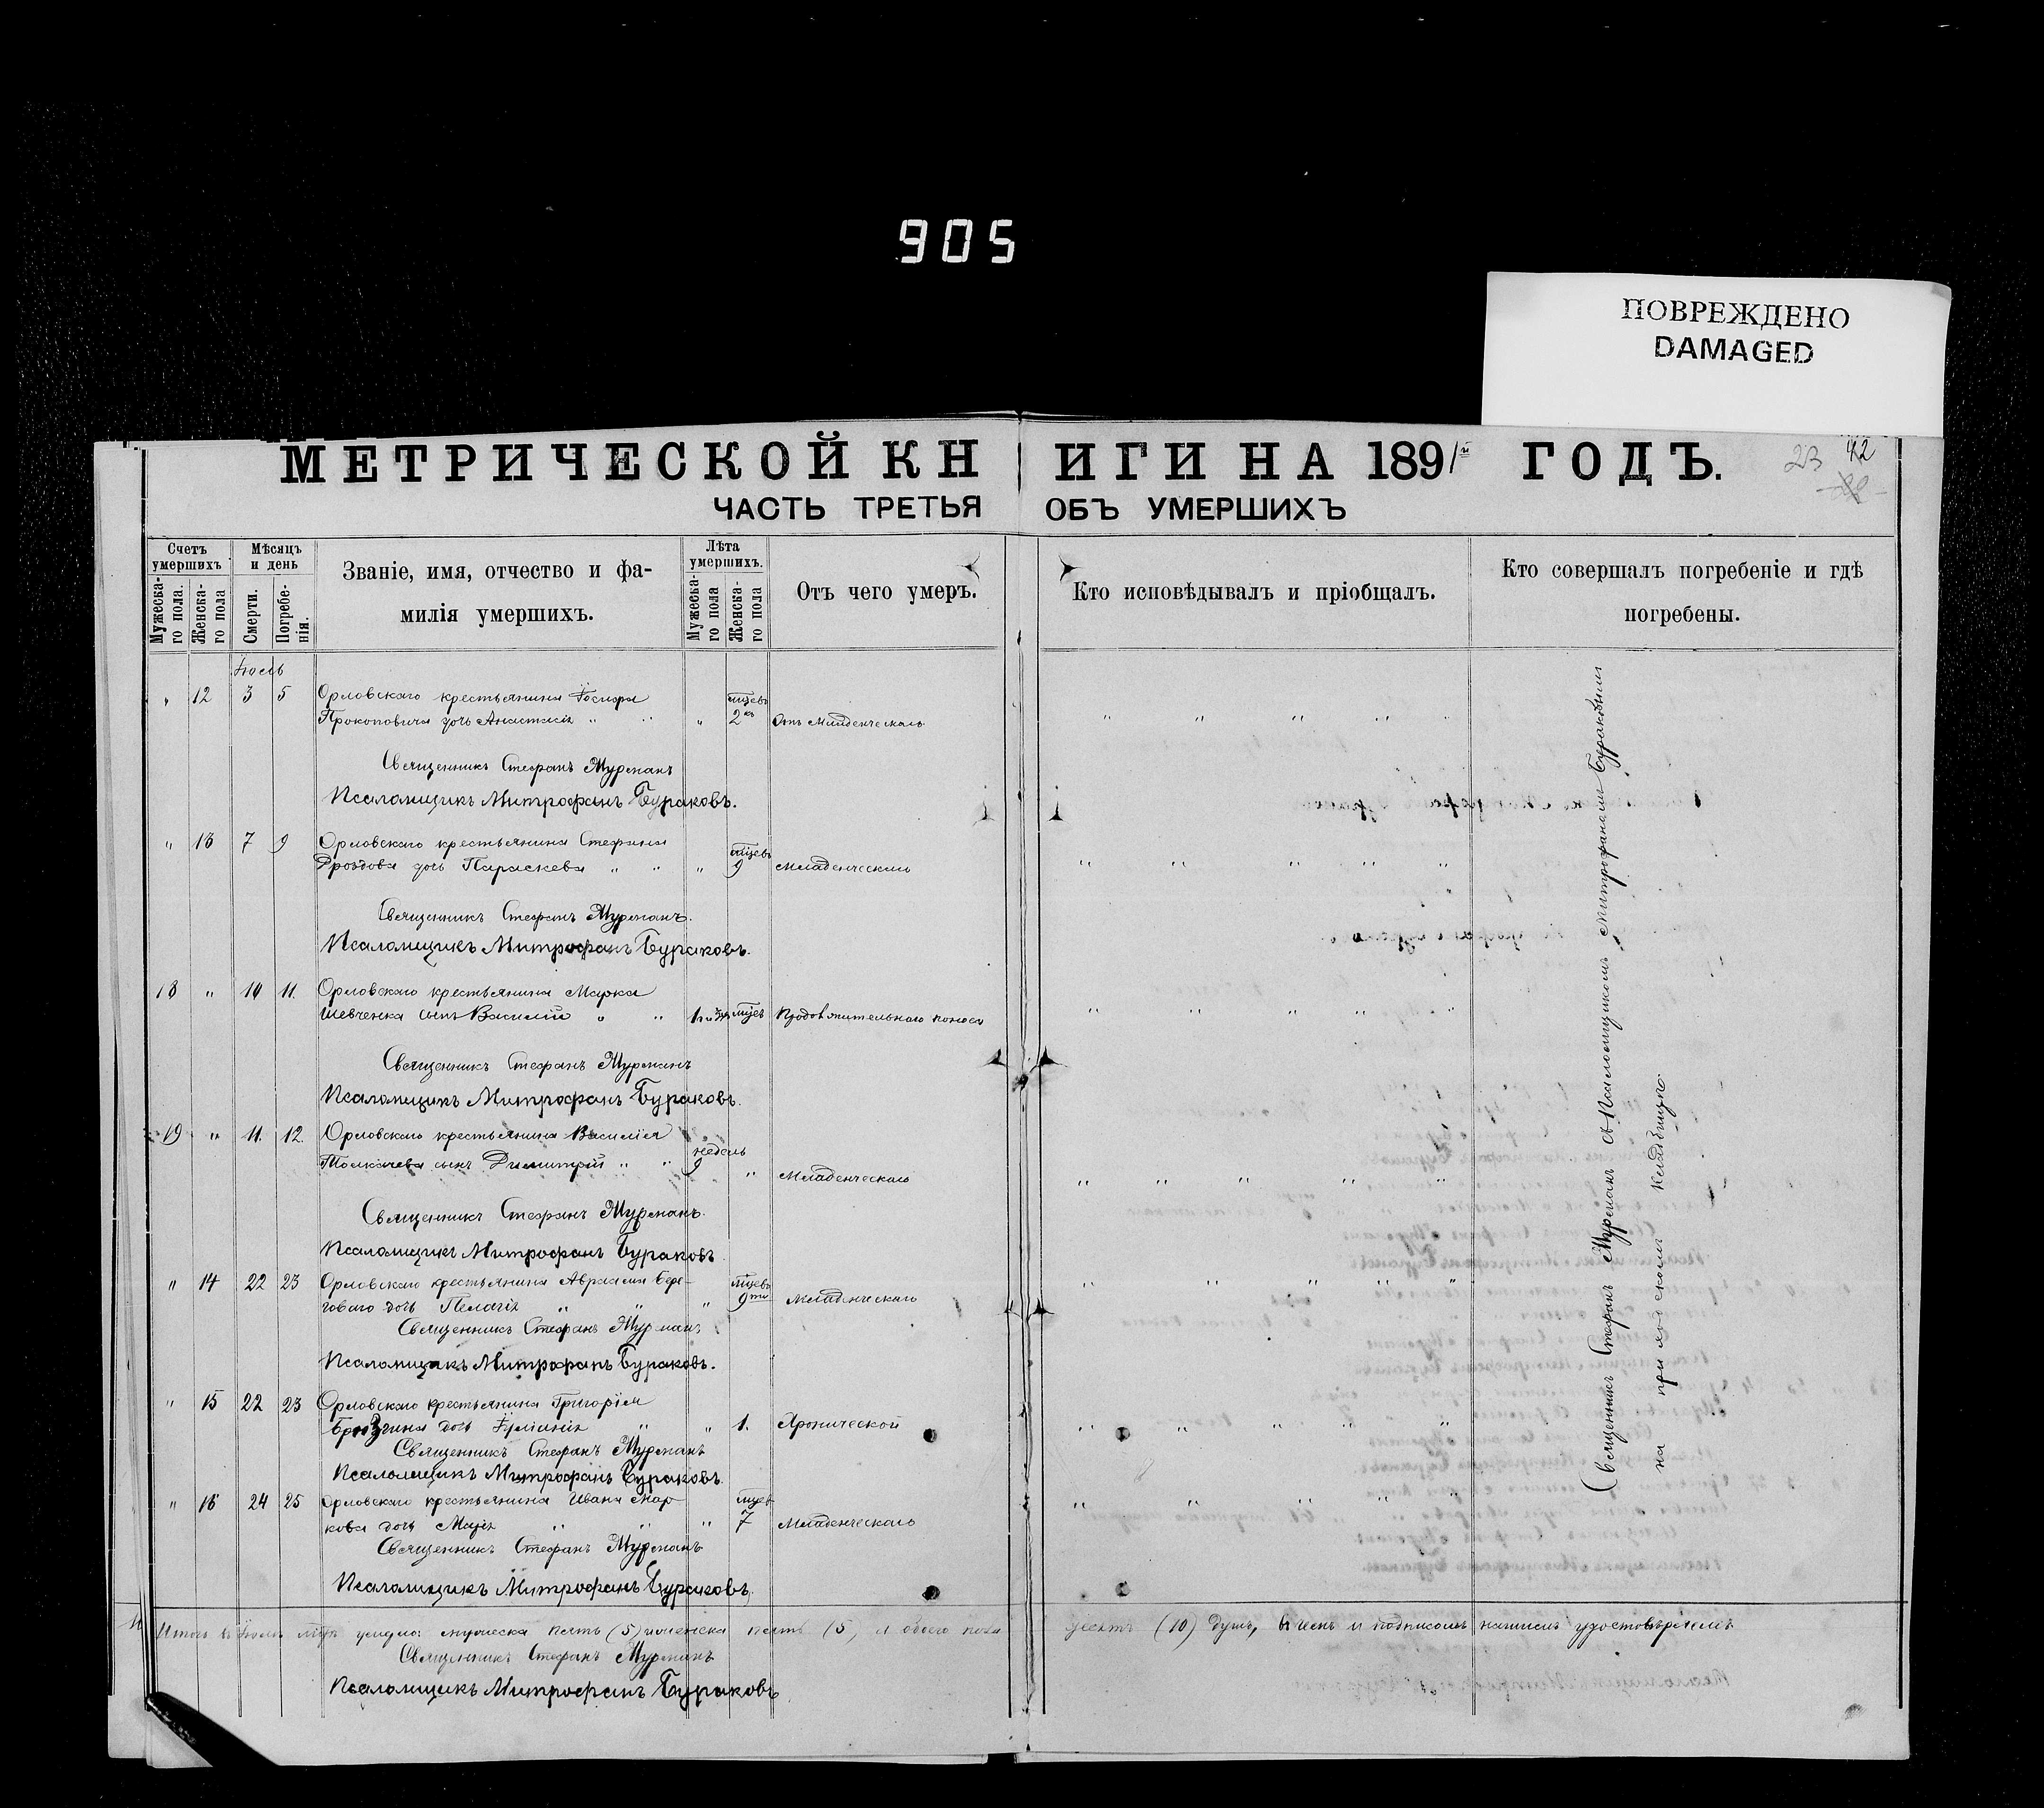 905
ПОВРЕЖДЕНО
DAMAGED
МЕТРИЧЕСКОЙ КНИГИ НА 1891й ГОДЪ.
23 42
ЧАСТЬ ТРЕТЬЯ ОБЪ УМЕРШИХЪ
Счетъ умершихъ
Мужеска-го пола.
Женска-го пола
Мѣсяцъ и день
Смерти.
Погребе-нія.
Званіе, имя, отчество и фа-
милія умершихъ.
Лѣта умершихъ.
Мужеска-го пола
Женска-го пола
Отъ чего умеръ.
Кто исповѣдывалъ и пріобщалъ.
Кто совершалъ погребеніе и гдѣ
погребены.
Іюль
" 12 3 5 Орловскаго крестьянина Іосифа мцевъ
Прокоповича дочь Анастасія " " " 2хъ Отъ младенческаго " " " " "
Священникъ Стефанъ Мурманъ
Псаломщикъ Митрофанъ Бураковъ.
" 13 7 9 Орловскаго крестьянина Стефана мцевъ
Дроздова дочь Параскева " " " 9 Младенческаго " " " " "
Священникъ Стефанъ Мурманъ.
Псаломщикъ Митрофанъ Бураковъ.
18 " 10 11. Орловскаго крестьянина Марка
Шевченка сынъ Василій " " мцев Продолжительнаго поноса " " " " "
Священникъ Стефанъ Мурманъ
Псаломщикъ Митрофанъ Бураковъ.
19 " 11. 12. Орловскаго крестьянина Василія недель
Толкачева сынъ Димитрій " " 9 " Младенческаго " " " " "
Священникъ Стефанъ Мурманъ.
Псаломщикъ Митрофанъ Бураковъ
" 14 22 23 Орловскаго крестьянина Авраама Бере- мцевъ
говаго дочь Пелагія " " " 9ти Младенческаго " " " " "
Священникъ Стефанъ Мурманъ
Псаломщикъ Митрофанъ Бураковъ.
" 15 22 23 Орловскаго крестьянина Григорія
дочь " " 1. Хронической " " " " "
Священникъ Стефанъ Мурманъ
Псаломщикъ Митрофанъ Бураковъ.
" 16 24 25 Орловскаго крестьянина Ивана Мар- мцев
кова дочь Марія " " " 7 Младенческаго " " " " "
Священникъ Стефанъ Мурманъ
Псаломщикъ Митрофанъ Бураковъ.
Священникъ Стефанъ Мурманъ съ Псаломщикомъ Митрофаномъ Бураковымъ
на приходскомъ кладбищѣ.
Итого въ Іюлѣ мцѣ умерло: мужеска пять (5) женска пять (5) а обоего пола десять (10) душъ, въ чемъ и подписомъ нашимъ удостовѣряемъ
Священникъ Стефанъ Мурманъ
Псаломщикъ Митрофанъ Бураковъ